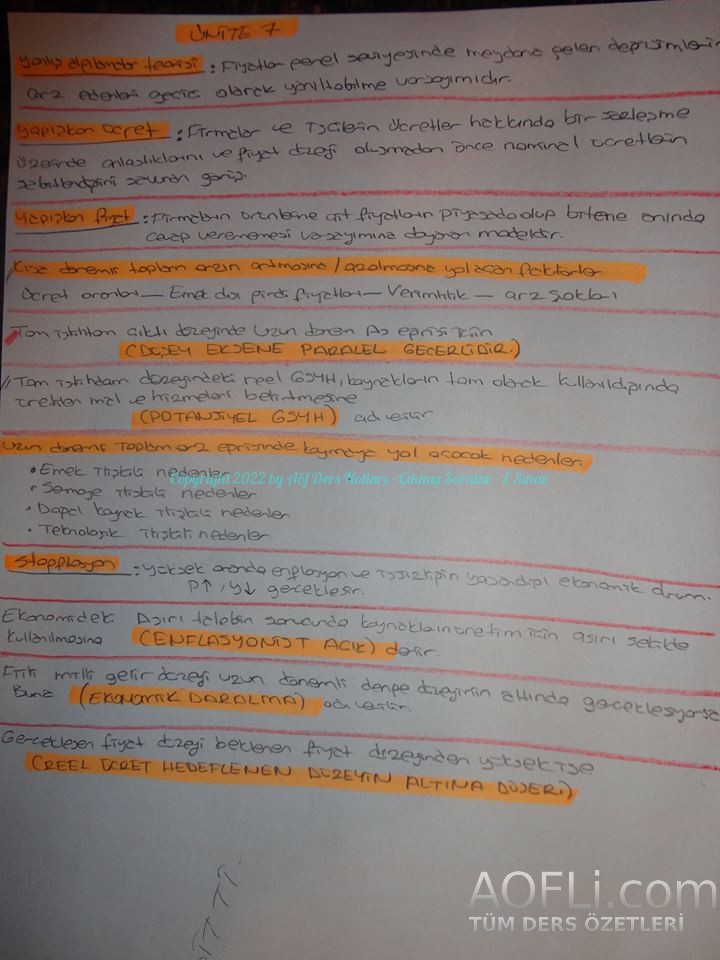 ÜNİTE 7
Yanlış algılamalar teorisi : Fiyatlar genel seviyesinde meydana gelen değişimlerin
arz edenleri geçici olarak yanıltabilme varsayımıdır.
Yapışkan ücret : Firmalar ve işçilerin ücretler hakkında bir sözleşme
üzerinde anlaştıklarını ve fiyat düzeyi oluşmadan önce nominal ücretlerin
sabitlendiğini savunan görüş.
Yapışkan fiyat : Firmaların ürünlerine ait fiyatların piyasada olup bitene anında
cevap verememesi varsayımına dayanan modeldir.
Kısa dönemli toplam arzın artmasına / azalmasına yol açan faktörler
Ücret oranları — Emek dışı girdi fiyatları — Verimlilik — arz şokları
Tam istihdam çıktı düzeyinde uzun dönem As eğrisi için
(DÜŞEY EKSENE PARALEL GEÇERLİDİR.)
// Tam istihdam düzeyindeki reel GSYH, kaynakların tam olarak kullanıldığında
üretilen mal ve hizmetleri belirtmesine
(POTANSİYEL GSYH) adı verilir
Uzun dönemli toplam arz eğrisinde kaymaya yol açacak nedenler
• Emek ilişkili nedenler
• Sermaye ilişkili nedenler
• Doğal kaynak ilişkili nedenler
• Teknolojik ilişkili nedenler
Copyright 2022 by Aöf Ders Notları - Çıkmış Sorular - E Sınav
Stagflasyon : Yüksek oranda enflasyon ve işsizliğin yaşandığı ekonomik durum.
P↑, Y↓ gerçekleşir.
Ekonomideki Aşırı talebin sonucunda kaynakların üretim için aşırı şekilde
kullanılmasına (ENFLASYONİST AÇIK) denir.
Fiili milli gelir düzeyi uzun dönemli denge düzeyinin altında gerçekleşiyorsa
Buna (EKONOMİK DARALMA) adı verilir.
Gerçekleşen fiyat düzeyi beklenen fiyat düzeyinden yüksek ise
(REEL ÜCRET HEDEFLENEN DÜZEYİN ALTINA DÜŞER.)
AOFLi.com
TÜM DERS ÖZETLERİ